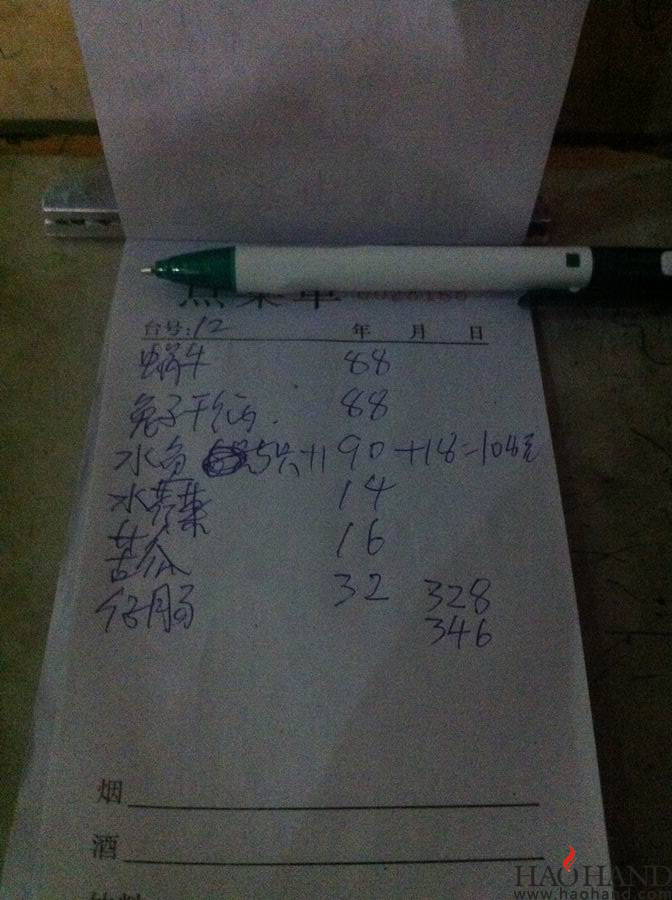 点菜单
台号:12 年 月 日
蜗牛 88
兔子干锅 88
水鱼 5只+1 90 +18=108元
水芹菜 14
苦瓜 16
仔肠 32 328
346
烟
酒
HAOHAND
www.haohand.com